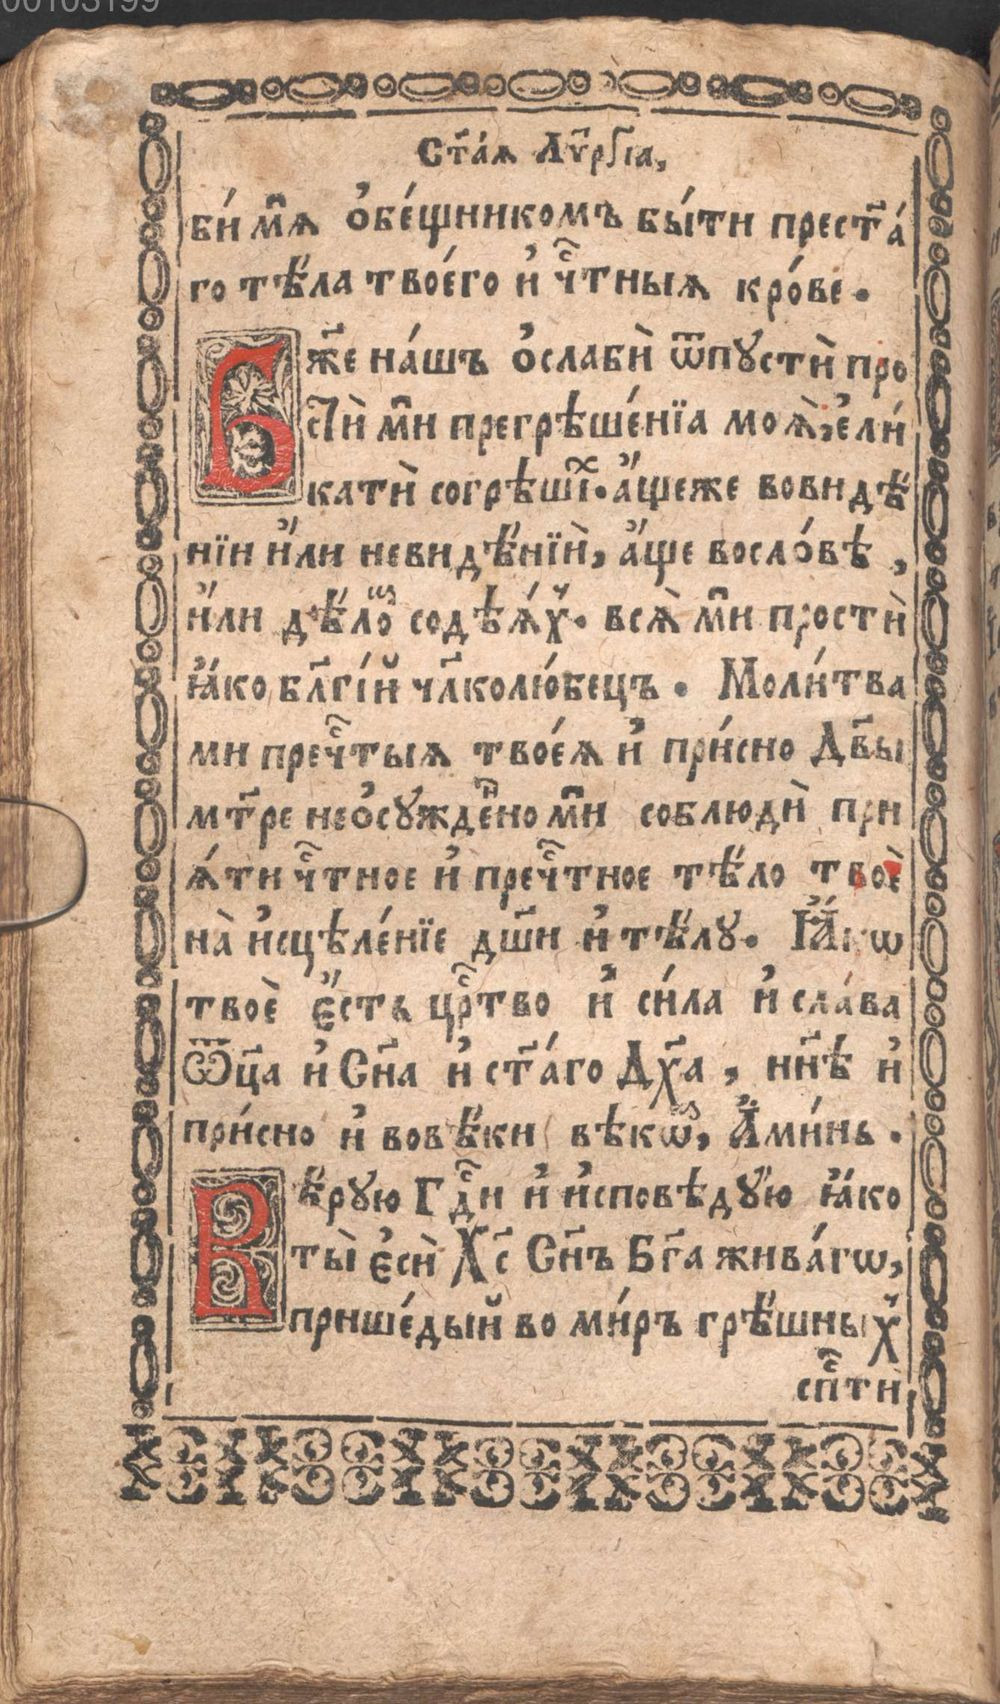 00103199
Ст҃а́ѧ Лѵ҃рꙿгїа,
би́ мѧ̀ ѻ҆бе́щникомъ бы́ти прест҃а́
го тѣ́ла твоего̀ и҆ чⷭ҇тныѧ кро́ве.
Бж҃е на́шъ ѻ҆слабѝ ѿпꙋстѝ про
стѝ мѝ прегрѣше́нїѧ моѧ҄, ели́
катѝ согрѣшиⷯ. а҆́щеже вовидѣ́
нїи и҆́ли невидѣ́нїи, а҆́ще восло́вѣ,
и҆́ли дѣ́лоⷨ содѣѧ́хъ. всѧ̀ мѝ простѝ
ꙗ҆́ко бл҃гі́й чл҃колю́бецъ. Моли́тва
ми пречⷭ҇тыѧ твоеѧ̀ и҆ при́сно Дв҃ы
мт҃ре неѻсꙋждеⷩ҇но мѝ соблюдѝ при
ѧ́ти чⷭ҇тное и҆ пречⷭ҇тное тѣ́ло твоѐ
на̀ и҆сцѣле́нїе дш҃и и҆ тѣ́лꙋ. Ꙗ҆́кѡ
твоѐ є҆́сть црⷭ҇тво и҆ си́ла и҆ сла́ва
Ѿц҃а и҆ Сн҃а и҆ ст҃а́го Дх҃а, нн҃ѣ и҆
при́сно и҆ вовѣ́ки вѣкѡⷡ҇, А҆ми́нь.
Вѣ́рꙋю Гдⷭ҇и и҆ и҆сповѣ́дꙋю ꙗ҆́ко
ты̀ є҆сѝ Хс҃ Сн҃ъ Бг҃а жива́гѡ,
прише́дый во ми́ръ грѣ́шныхъ
спⷭ҇тѝ